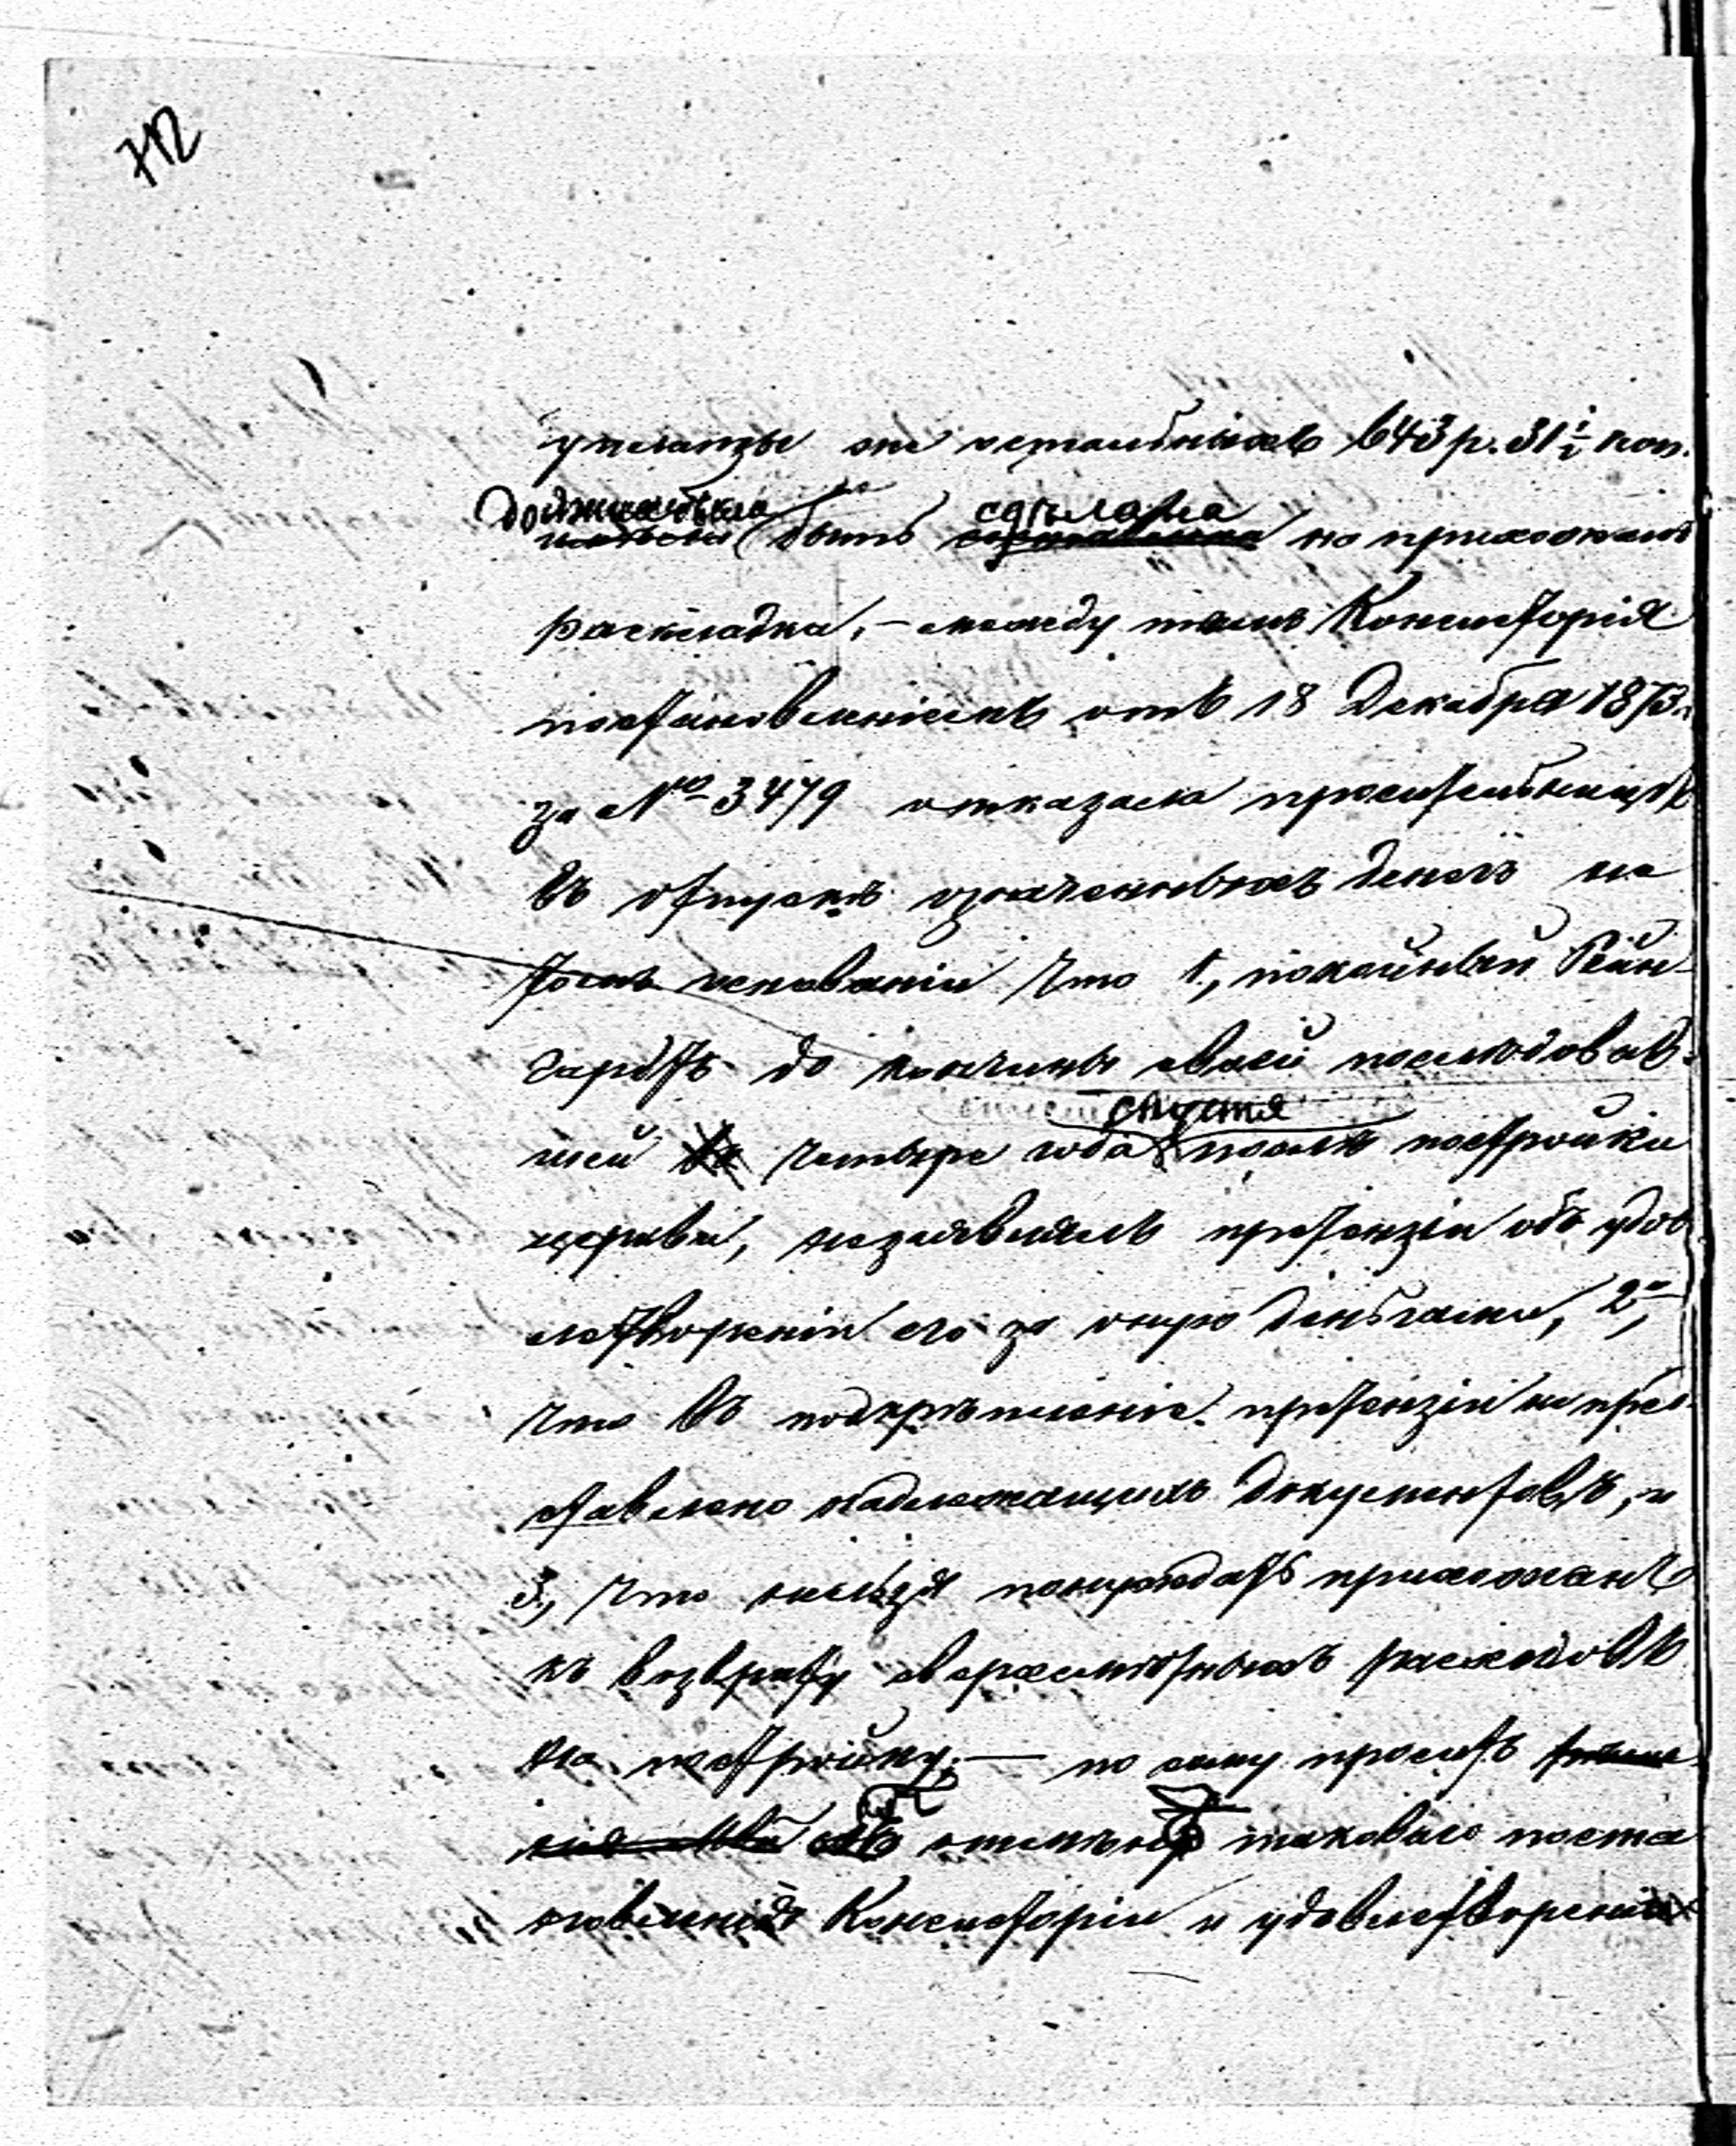 712
уплаты же остальныхъ 643 р. 31½ коп.
должна была
сдѣлана
быть на прихожанъ
раскладка, – между тѣмъ Консисторія
постановленіемъ отъ 18 Декабря 1873 г.
за № 3479 отказала просительницѣ
въ отпускѣ означенныхъ денегъ на
томъ основаніи что 1, покойный Рейн-
гардтъ до кончины своей последовав-
спустя
шей четыре года после постройки
церкви, незаявлялъ претензіи объ удов
летвореніи его за оную деньгами, 2,
что въ подкрѣпленіе претензіи не пред-
ставлено надлежащихъ документовъ, и
3, что нельзя понуждать прихожанъ
къ возврату сверхсмѣтныхъ расходовъ
на постройку; — по сему проситъ
объ отмѣнѣ таковаго поста
новленія Консисторіи и удовлетвореніи